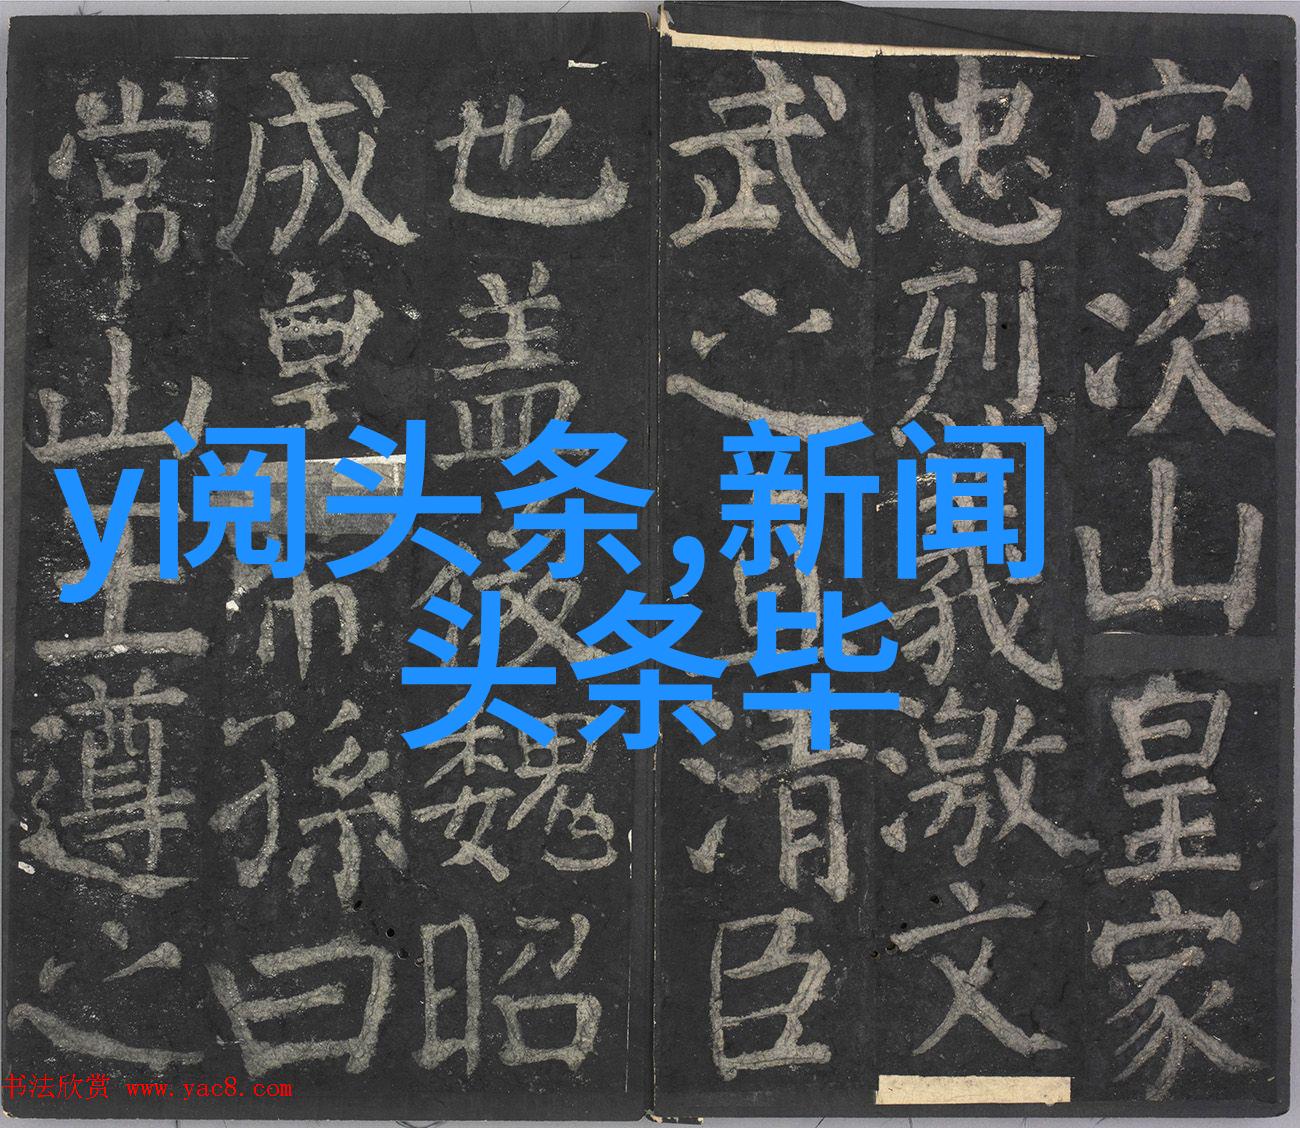 字次山皇家
忠烈義激文
武之直清臣
也盖後魏昭
成皇帝孫曰
常山王遵之
y阅头条,新闻
头条毕
书法欣赏 www.yac8.com